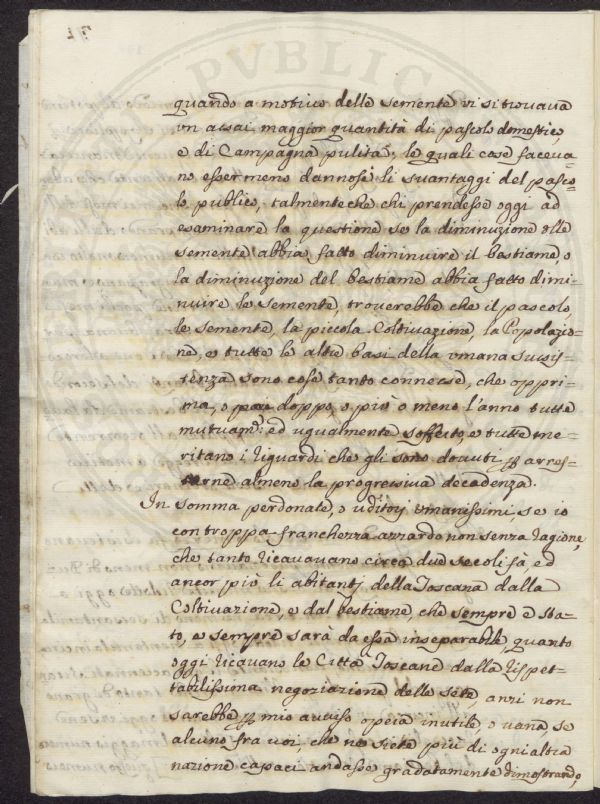 quando a motivo delle semente vi si trovava
un assai maggior quantità di pascolo domestico,
e di Campagna pulita; le quali cose faceva-
no esser meno dannosi li svantaggi del pasco-
lo publico, talmente che chi prendesse oggi ad
esaminare la questione se la diminuzione delle
semente abbia fatto diminuire il bestiame o
la diminuzione del bestiame abbia fatto dimi-
nuire le semente, troverebbe che il pascolo,
le semente, la piccola Coltivazione, la Popolazio-
ne, e tutte le altre basi della umana sussis-
tenza sono cose tanto connesse, che o ppri-
ma, o poi doppo, o più o meno l'anno tutte
mutuam: ed ugualmente sofferto, e tutte me-
ritano i riguardi che gli sono dovuti p arres-
tarne almeno la progressiva decadenza.
In somma perdonate, o uditorj umanissimi, se io
con troppa franchezza azzardo non senza ragione,
che tanto ricavavano circa due secoli fà, ed
ancor più li abitanti della Toscana dalla
Coltivazione, e dal bestiame, che sempre è sta-
to, e sempre sarà da essa inseparabile quanto
oggi ricavano le Città Toscane dalla rispet-
tabilissima negoziazione delle sete, anzi non
sarebbe p mio avviso opera inutile o vana se
alcuno fra voi, che ne siete più di ogni altra
nazione capaci andasse gradatamente dimostrando,